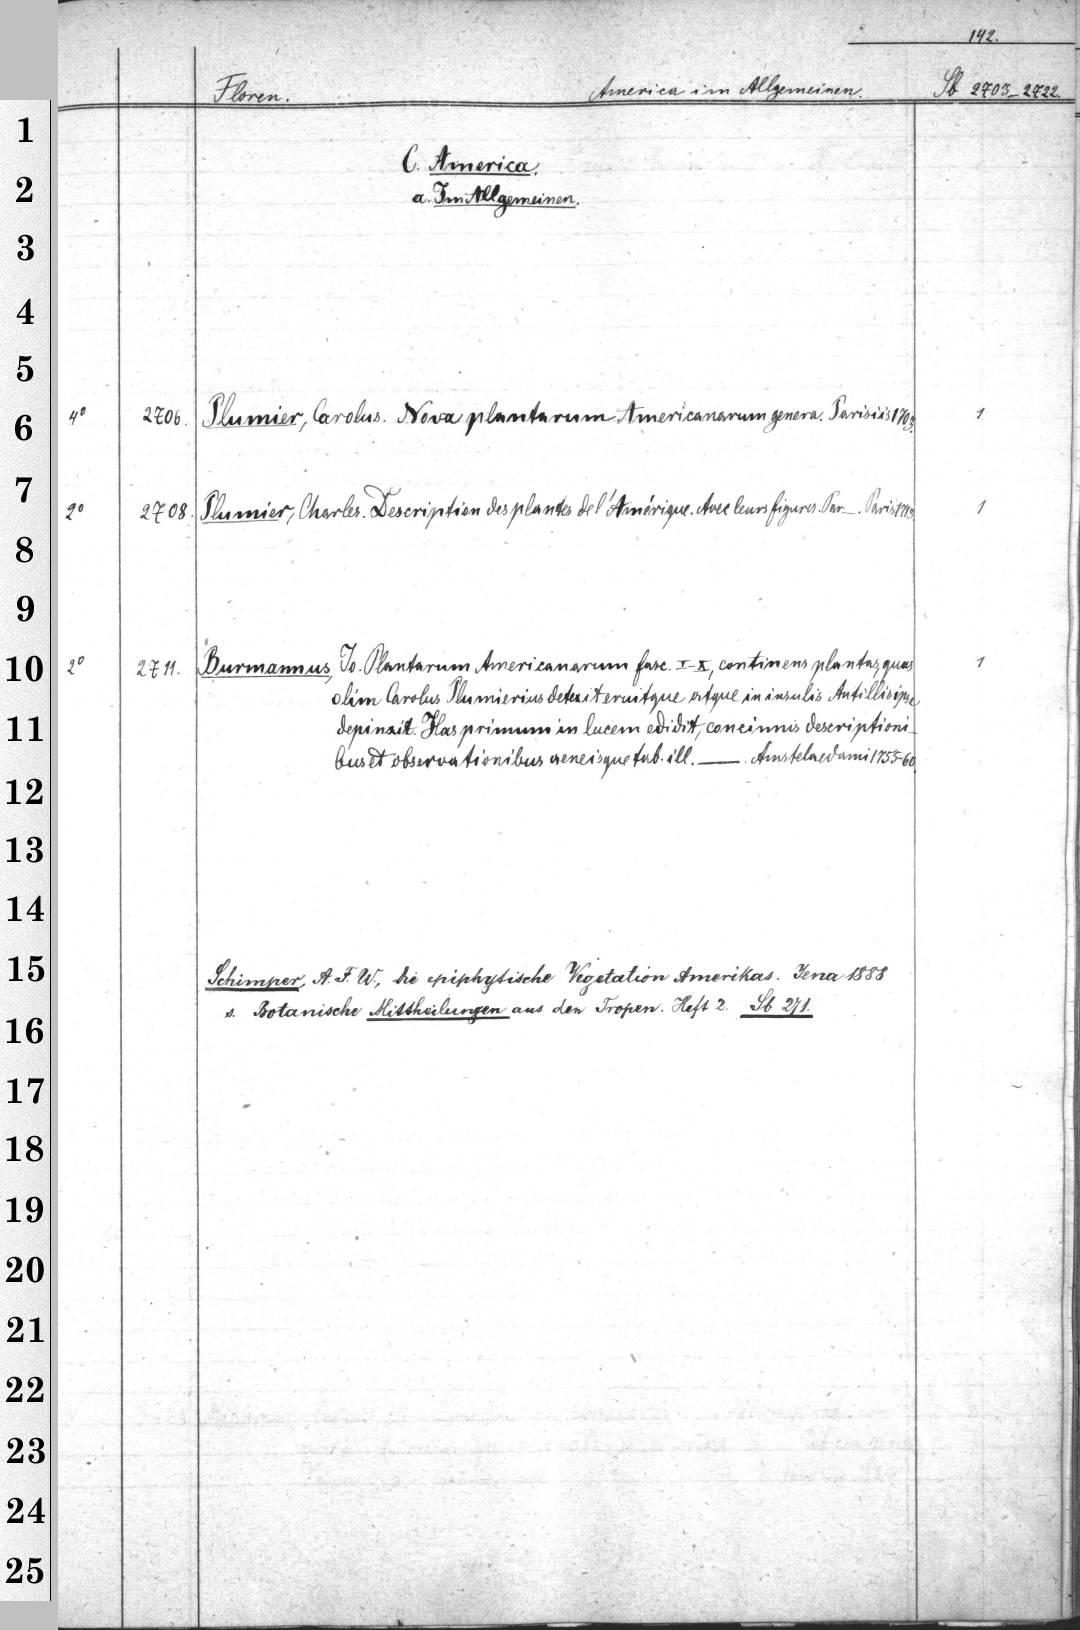 142.
Floren. America im Allgemeinen. Sb 2703-2722.
C. America.
a. Im Allgemeinen.
4° 2706. Plumier, Carolus. Nova plantarum Americanarum genera. Parisiis 1703. 1
2° 2708. Plumier, Charles. Description des plantes de l'Amérique. Avec leurs figures. Par —. Paris 1713. 1
2° 2711. Burmannus, Jo. Plantarum Americanarum fasc. I-X, continens plantas, quas 1
olim Carolus Plumierius detexit eruitque atque in insulis Antillis ipse
depinxit. Has primum in lucem edidit, concinnis descriptioni-
bus et observationibus aeneisque tab. ill. —. Amstelaedami 1755-60.
Schimper, A. F. W., die epiphytische Vegetation Amerikas. Jena 1888
s. Botanische Mittheilungen aus den Tropen. Heft 2. Sb 271.
1
2
3
4
5
6
7
8
9
10
11
12
13
14
15
16
17
18
19
20
21
22
23
24
25